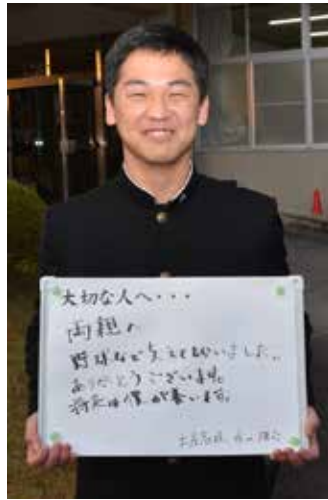 大切な人へ・・・
両親へ
野球など支えてもらいました。
ありがとうございます。
将来は僕が養います。